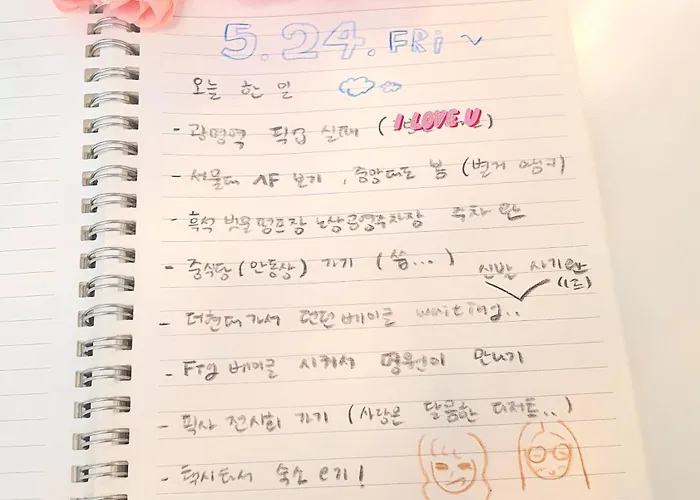 5.24. FRi ~
오늘 한 일
- 광명역 픽업 실패 ( I LOVE U )
- 서울대 AF 보기, 중앙대도 봄 (별거
- 흑석 빗물펌프장 노상공영주차장 주차 완
- 중식당 (안동장) 가기 (씁...)
신발 사기 완
- 더현대가서 런던베이글 waiting..
- Fig 베이글 시켜서 명원이 만나기
- 픽사 전시회 가기 (사랑은 달콤한 디저트..)
- 택시타서 숙소 e기!